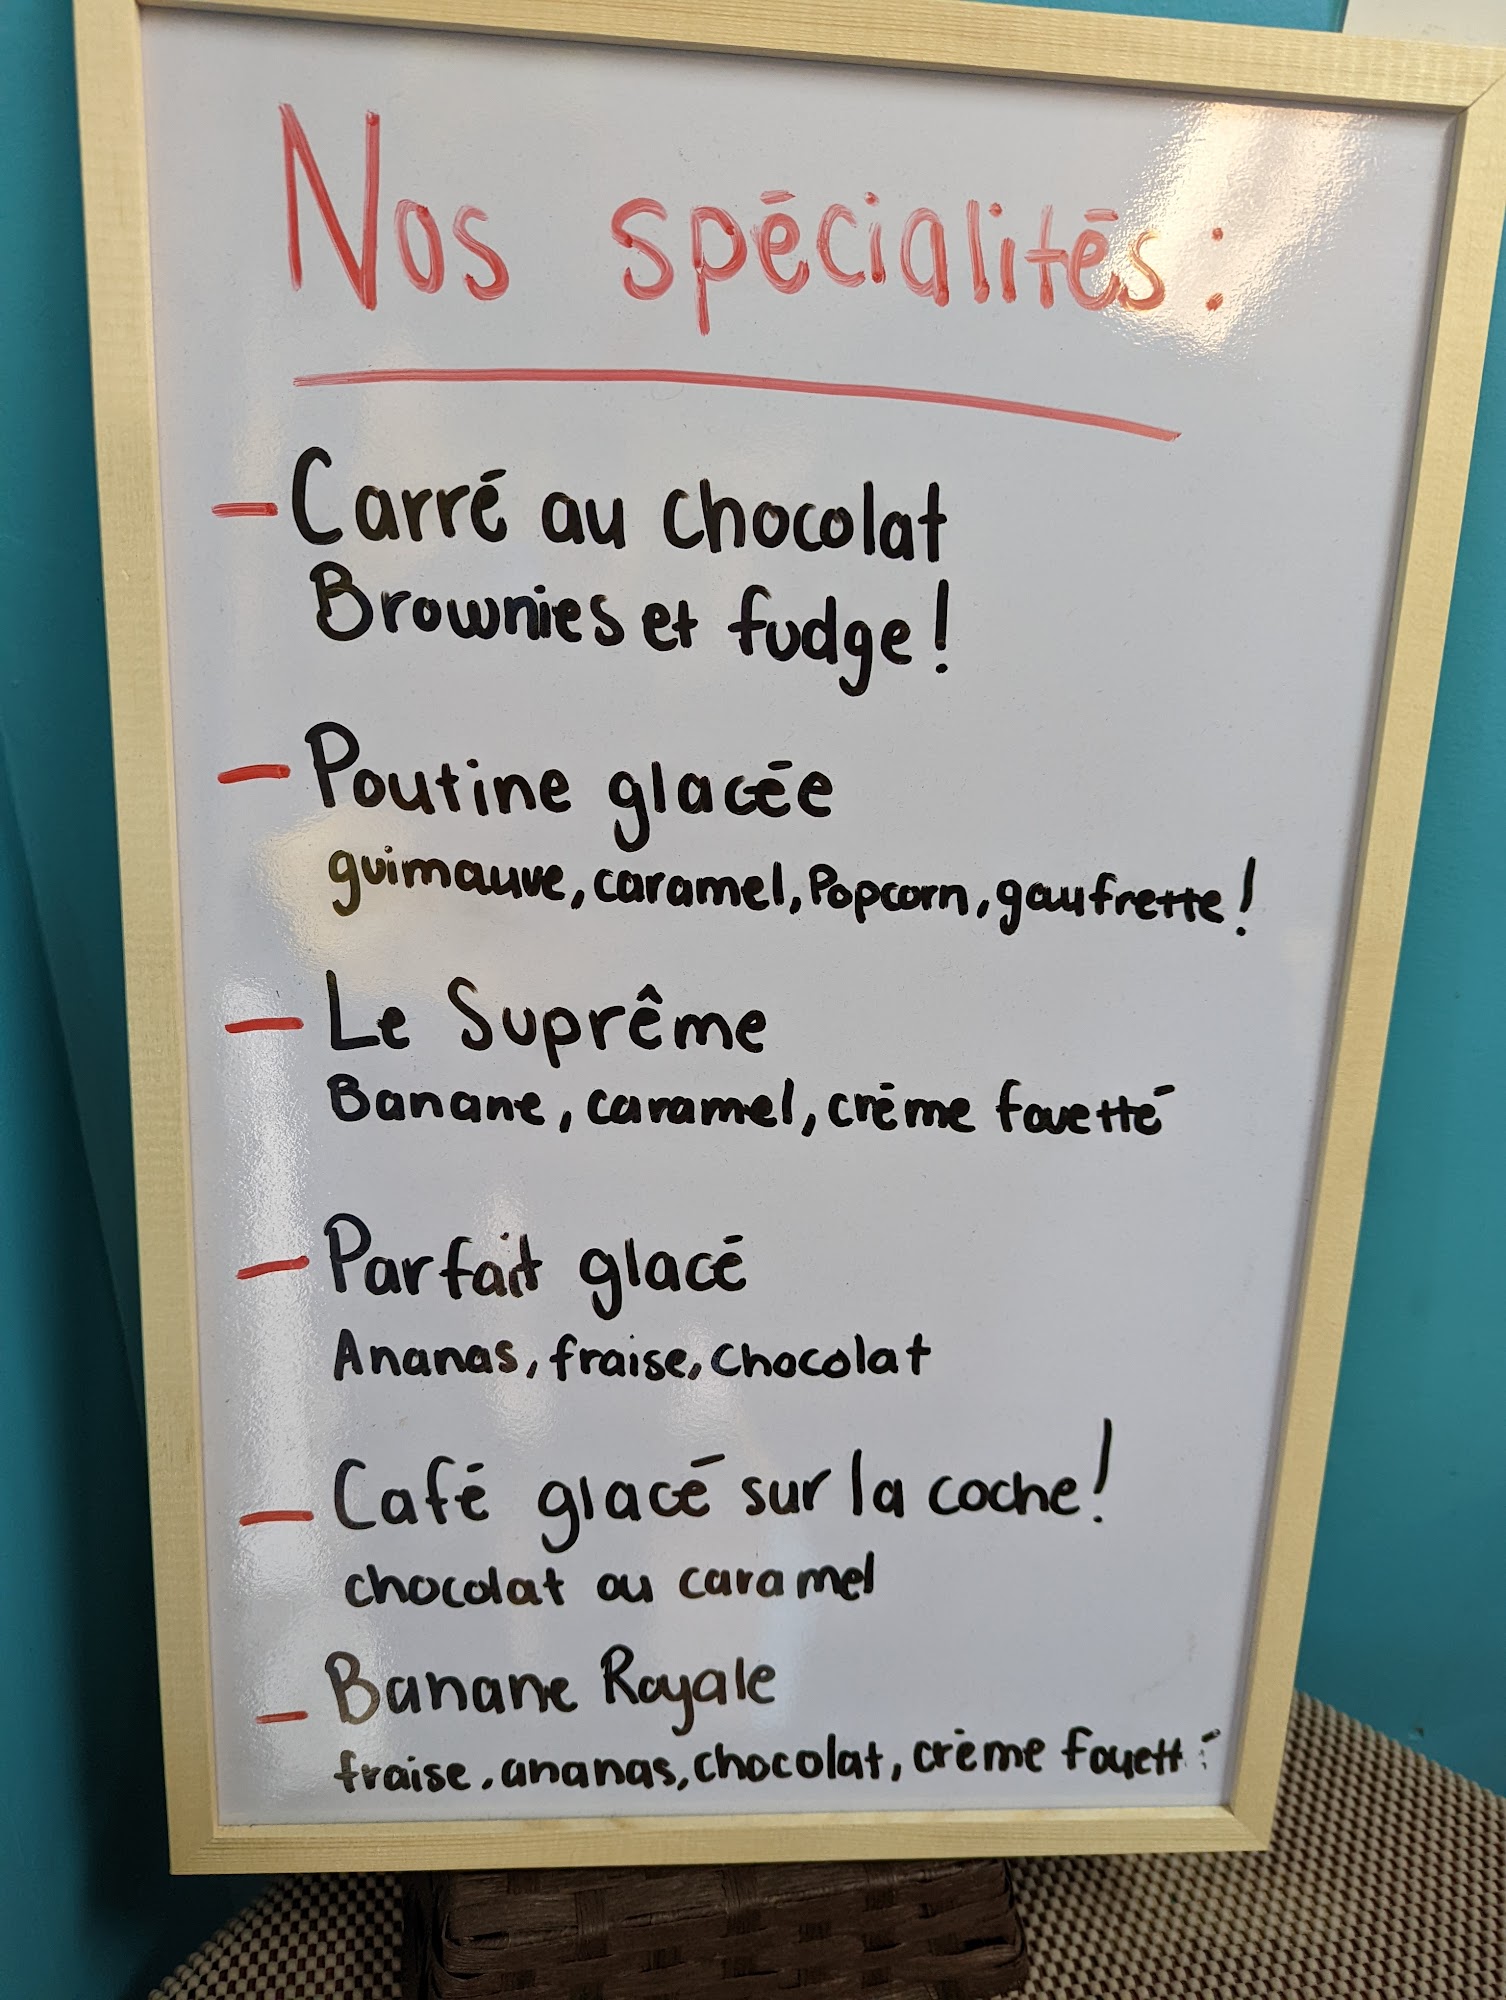 Nos spécialités :
- Carré au chocolat
Brownies et fudge !
- Poutine glacée
guimauve, caramel, Popcorn, gaufrette !
- Le Suprême
Banane, caramel, crème fouetté
- Parfait glacé
Ananas, fraise, chocolat
- Café glacé sur la coche !
chocolat ou caramel
- Banane Royale
fraise, ananas, chocolat, crème fouetté